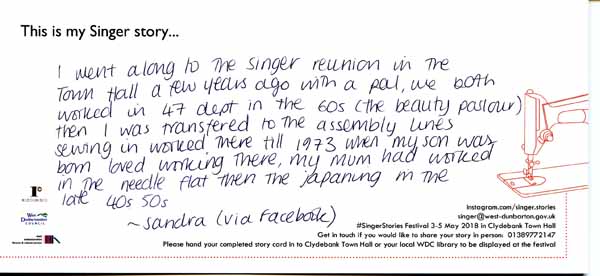 This is my Singer story...
I went along to the singer reunion in the
Town Hall a few years ago with a pal, we both
worked in 47 dept in the 60s (the beauty parlour)
then I was transfered to the assembly lines
sewing in worked there till 1973 when my son was
born loved working there, my mum had worked
in the needle flat then the japaning in the
late 40s 50s
~sandra (via Facebook)
West
Dunbartonshire
COUNCIL
instagram.com/singer.stories
singer@west-dunbarton.gov.uk
#SingerStories Festival 3-5 May 2018 in Clydebank Town Hall
Get in touch if you would like to share your story in person: 01389772147
Please hand your completed story card in to Clydebank Town Hall or your local WDC library to be displayed at the festival